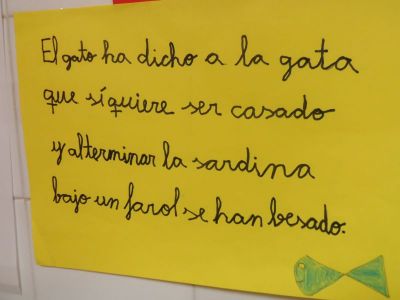 El gato ha dicho a la gata
que sí quiere ser casado
y al terminar la sardina
bajo un farol se han besado.